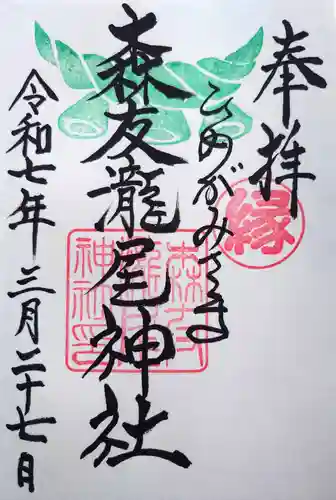 奉拝
縁
ひめがみさま
森友瀧尾神社
森友瀧尾神社印
令和七年三月二十七日